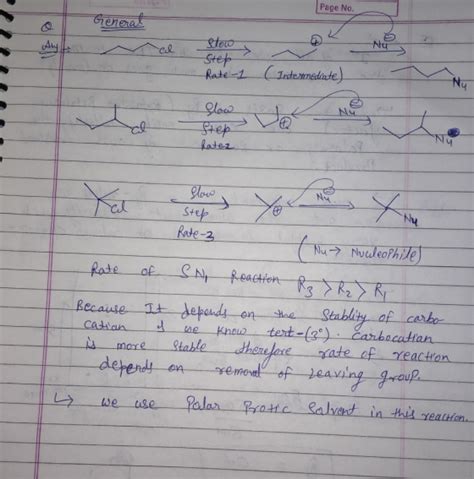 Page No.
Q General
Ans Cl Slow Step Rate-1 ⊕ (Intermediate) Nu⊖ Nu
Cl Slow Step Rate2 ⊕ Nu⊖ Nu
Cl Slow Step Rate-3 ⊕ Nu⊖ Nu
(Nu → Nucleophile)
Rate of SN1 Reaction R3 > R2 > R1
Because It depends on the Stablity of carbo-
cation & we know tert-(3°). Carbocation
is more stable therefore rate of reaction
depends on removal of leaving group.
↳ we use Polar Protic Solvent in this reaction.